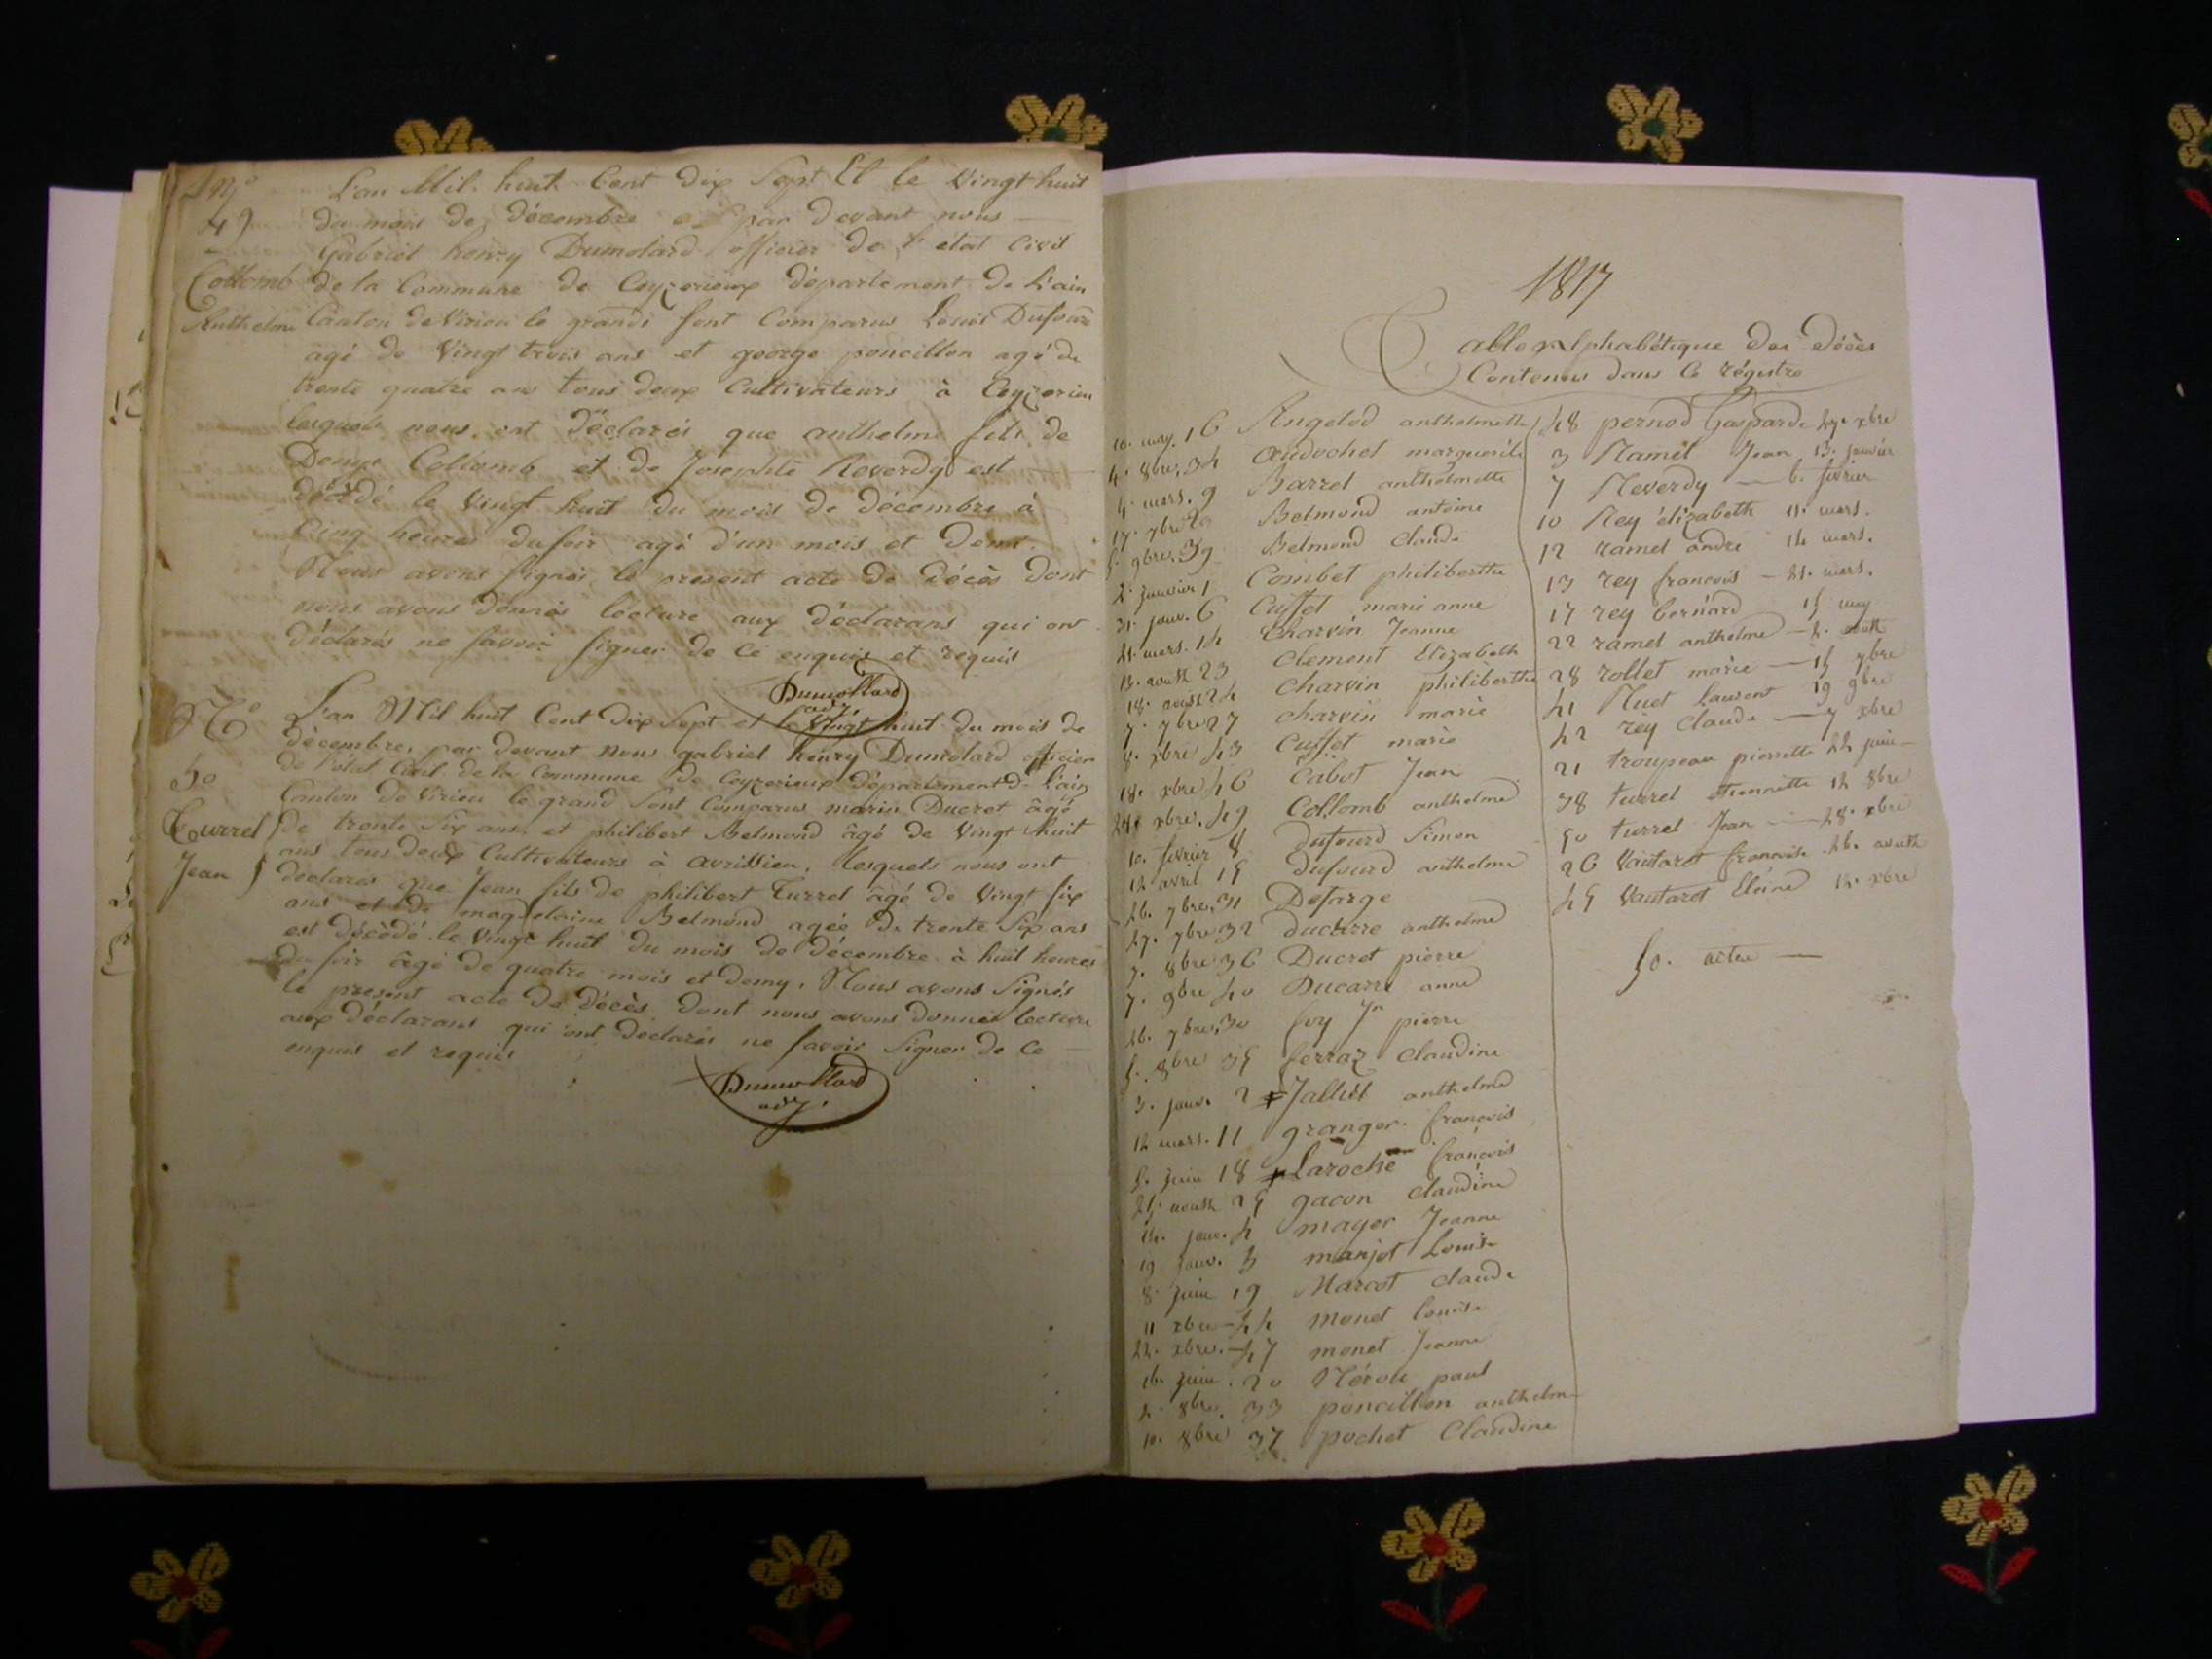 N°
49
Collomb
Anthelme
L'an Mil huit Cent dix Sept Et le Vingt huit
du mois de décembre par devant nous
Gabriel henry Dumolard officier de l'état Civil
de la Commune de Ceyzerieux département de L'ain
Canton de Virieu le grand sont Comparus Louis Dufour
agé de Vingt trois ans et george poncillon agé de
trente quatre ans tous deux Cultivateurs à Ceyzerieu
lesquels nous ont Déclarés que anthelme fils de
Denys Collomb et de Josephte Reverdy est
décédé le Vingt huit du mois de décembre à
Cinq heures du soir agé d'un mois et demi.
Nous avons signés le present acte de décès dont
nous avons donnés lecture aux déclarans qui ont
déclarés ne savoir signer de ce enquis et requis
Dumollard
adj.
N°
50
Turrel
Jean
L'an Mil huit Cent Dix Sept et le Vingt huit du mois de
décembre, par devant nous gabriel henry Dumolard officier
de l'état Civil de la Commune de Ceyzerieux département de L'ain
Canton de Virieu le grand sont Comparus marin Ducret âgé
de trente Six ans, et philibert Belmond âgé de Vingt huit
ans tous deux Cultivateurs à avrissieu, lesquels nous ont
déclarés que Jean fils de philibert Turrel âgé de Vingt six
ans et de magdelaine Belmond agée de trente Six ans
est décédé le Vingt huit du mois de décembre à huit heures
du soir âgé de quatre mois et demy. Nous avons Signés
le present acte de Décès dont nous avons donnés lecture
aux déclarans qui ont déclarés ne savoir Signer de ce
enquis et requis
Dumollard
adj.
1817
Table alphabétique des décès
Contenus dans le régistre
10. may. 16 Angelod anthelmette
4. 8bre. 34 Audochet marguerite
4. mars. 9 Barrel anthelmette
17. 7bre 29 Belmond antoine
5. 9bre. 39 Belmond Claude
2. janvier 1 Combet philiberthe
31. janv. 6 Cusset marie anne
21. mars. 14 Charvin Jeanne
13. aoust 23 Clement Elizabeth
18. aoust 24 Charvin philiberthe
7. 7bre 27 charvin marie
8. xbre 43 Cusset marie
18. xbre 46 Cabot Jean
28. xbre. 49 Collomb anthelme
10. fevrier 8 Dufourd Simon
12 avril 15 dufourd anthelme
26. 7bre. 31 Defarge
27. 7bre 32 ducarre anthelme
7. 8bre 36 Ducret pierre
7. 9bre 40 Ducarre anne
26. 7bre. 30 foy Jn pierre
5. 8bre 35 ferraz Claudine
3. janv. 2 Jalliet anthelme
12 mars. 11 granger françois
5. juin 18 Laroche françois
25 aoust 25 gacon claudine
14. janv. 4 mayer Jeanne
19 janv. 5 manjot Louise
8. juin 19 Marcot claude
11 xbre 44 monet louise
22. xbre. 47 monet Jeanne
16. juin. 20 paul
2. 8bre. 33 poncillon anthelme
10. 8bre 37 pochet Claudine
48 pernod Gasparde 27. xbre
3 Ramel Jean 13. janvier
7 Reverdy — 6. fevrier
10 Rey élizabeth 11. mars.
12 ramel andré 14 mars.
13 rey françois — 21. mars.
17 rey bernard 15 may
22 ramel anthelme — 2. aoust
28 rollet marie — 15 7bre
41 Ruet Laurent 19 9bre
42 rey Claude — 7 xbre
21 troupeau pierrette 22 juin —
38 turrel étiennette 12 8bre
50 turrel Jean — 28. xbre
26 Vautaret francoise 26. aoust
45 Vautaret 12. xbre
50. actes —